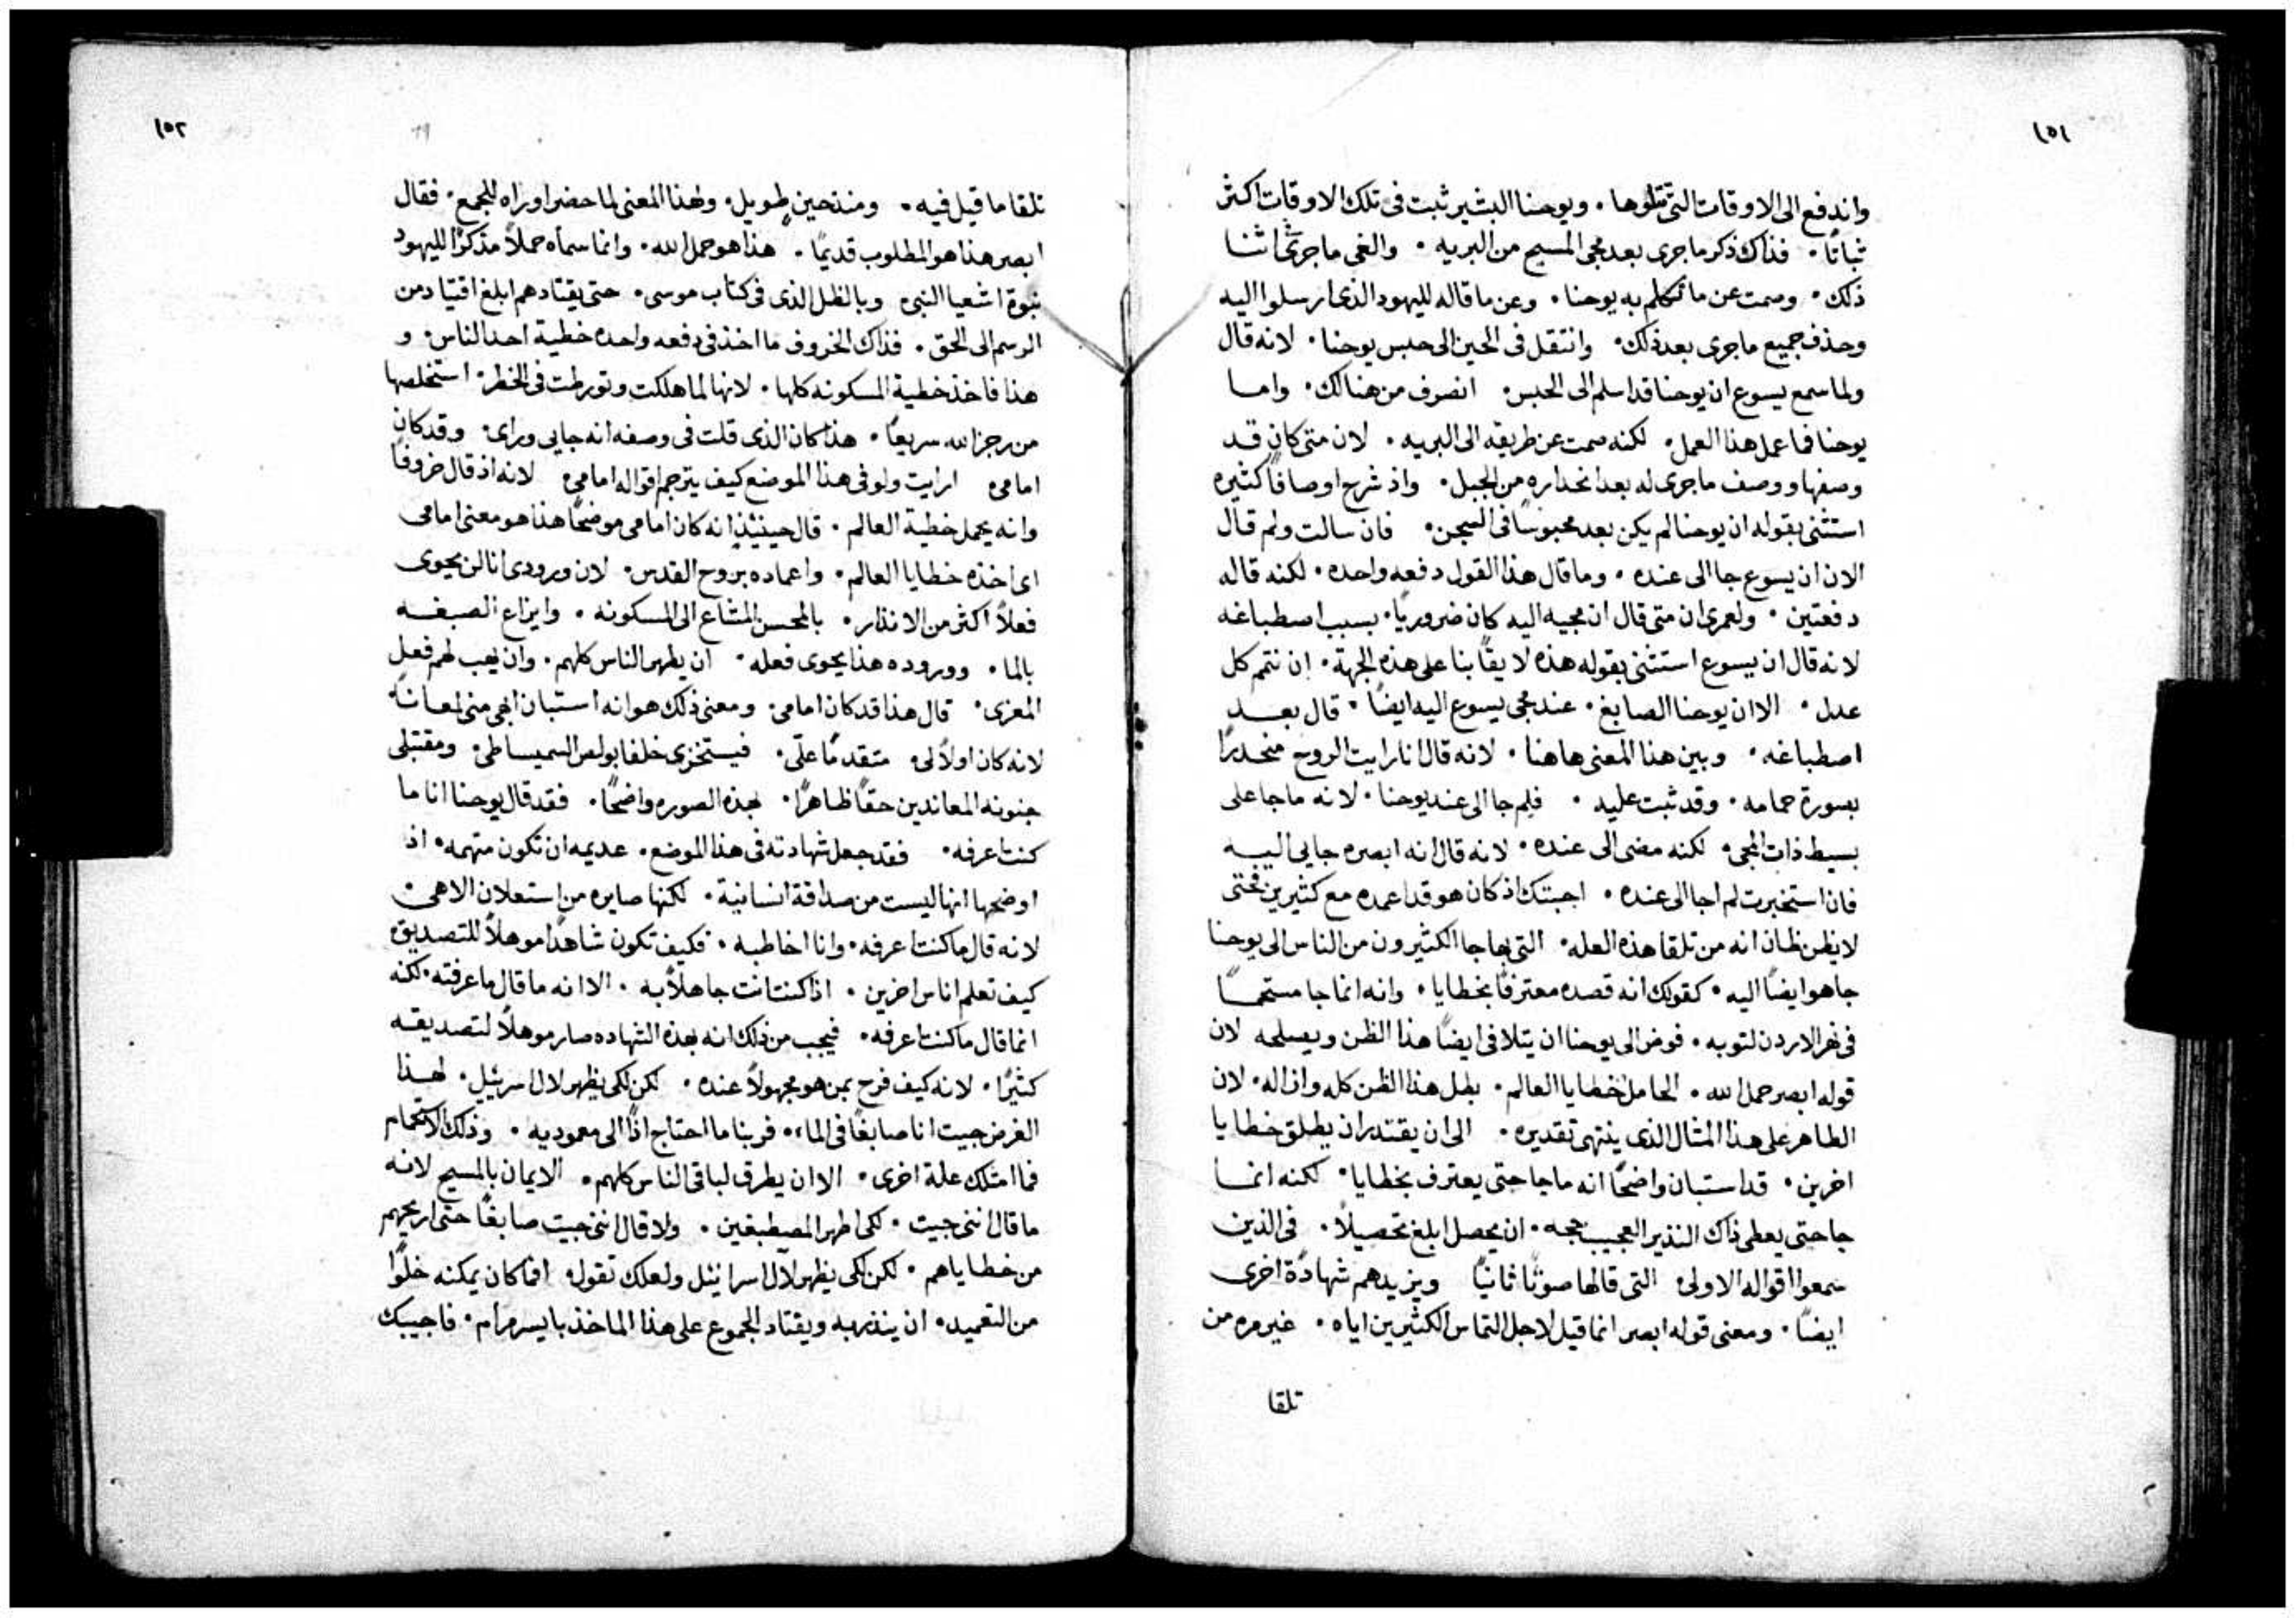 ١٥١
واندفع الى الاوقات التي تتلوها. ويوحنا البشير ثبت فى تلك الاوقات اكثر
ثباتًا. فذاك ذكر ما جرى بعد مجى المسيح من البريه. والغى ما جرى فى اثنا
ذلك. وصمت عن ما تكلم به يوحنا. وعن ما قاله لليهود الذى ارسلوا اليه
وحذف جميع ما جرى بعد ذلك. وانتقل فى الحين الى حبس يوحنا. لانه قال
ولما سمع يسوع ان يوحنا قد اسلم الى الحبس. انصرف من هنالك. واما
يوحنا فما عمل هذا العمل. لكنه صمت عن طريقه الى البريه. لان متى كان قد
وصفها ووصف ما جرى له بعد انحداره من الجبل. واذ شرح اوصافًا كثيره
استثنى بقوله ان يوحنا لم يكن بعد محبوسًا فى السجن. فان سالت ولم قال
الان ان يسوع جا الى عنده. وما قال هذا القول دفعه واحده. لكنه قاله
دفعتين. ولعمرى ان متى قال ان مجيه اليه كان ضروريًا. بسبب اصطباغه
لانه قال ان يسوع استثنى بقوله هذه لايقًا بنا على هذه الجهة. ان نتم كل
عدل. الا ان يوحنا الصابغ. عند مجى يسوع اليه ايضًا. قال بعد
اصطباغه. وبين هذا المعنى هاهنا. لانه قال انا رايت الروح منحدرًا
بصورة حمامه. وقد ثبت عليه. فلم جا الى عند يوحنا. لانه ما جا على
بسيط ذات المجى. لكنه مضى الى عنده. لانه قال انه ابصره جايى اليه
فان استخبرت لم اجا الى عنده. اجبتك اذ كان هو قد اعمده مع كثيرين فحتى
لا يظن ظان انه من تلقا هذه العله. التى بها جا الكثيرون من الناس الى يوحنا
جا هو ايضًا اليه. كقولك انه قصده معترفًا بخطايا. وانه انما جا مستحمًا
فى نهر الاردن لتوبه. فوض الى يوحنا ان يتلافى ايضًا هذا الظن ويصلحه لان
قوله ابصر حمل الله. الحامل خطايا العالم. بطل هذا الظن كله وازاله. لان
الطاهر على هذا المثال الذى ينتهى تقديره. الى ان يقتدر ان يطلق خطايا
اخرين. قد استبان واضحًا انه ما جا حتى يعترف بخطايا. لكنه انما
جا حتى يعطى ذاك النذير العجيب حجه. ان يحصل ابلغ تحصيلاً. فى الذين
سمعوا اقواله الاولى التى قالها صوتًا ثانيًا ويزيدهم شهادة اخرى
ايضًا. ومعنى قوله ابصر انما قيل لاجل التماس الكثيرين اياه. غير مره من
تلقا
١٥٢
تلقا ما قيل فيه. ومنذ حين طويل. ولهذا المعنى لما حضر اوراه للجمع. فقال
ابصر هذا هو المطلوب قديمًا. هذا هو حمل الله. وانما سماه حملاً مذكرًا لليهود
بنبوة اشعيا النبى وبالظل الذى فى كتاب موسى. حتى يقتادهم ابلغ اقتياد من
الرسم الى الحق. فذاك الخروف ما اخذ فى دفعه واحده خطية احد الناس. و
هذا فاخذ خطية المسكونه كلها. لانها لما هلكت وتورطت فى الخطر. استخلصها
من رجز الله سريعًا. هذا كان الذى قلت فى وصفه انه جايى وراى. وقد كان
امامى. ارايت ولو فى هذا الموضع كيف يترجم اقواله امامى. لانه اذ قال خروفًا
وانه يحمل خطية العالم. قال حينيذٍ انه كان امامى موضحًا هذا هو معنى امامى
اى اخذه خطايا العالم. واعماده بروح القدس. لان ورودى انا لن يحوى
فعلاً اكثر من الانذار. بالمحسن المشاع الى المسكونه. وايزاع الصبغه
بالما. ووروده هذا يحوى فعله. ان يطهر الناس كلهم. وان يهب لهم فعل
المعزى. قال هذا قد كان امامى. ومعنى ذلك هو انه استبان ابهى منى لمعانًا
لانه كان اولاً لى. متقدمًا علىّ. فيستخزى خلفا بولص السميساطى. ومقتبلى
جنونه المعاندين حقًا ظاهرًا. بهذه الصوره واضحًا. فقد قال يوحنا انا ما
كنت اعرفه. فقد جعل شهادته فى هذا الموضع. عديمه ان تكون متهمه. اذ
اوضحها انها ليست من صداقة انسانية. لكنها صايره من استعلان الاهى.
لانه قال ما كنت اعرفه. وانا اخاطبه. فكيف تكون شاهدًا موهلاً للتصديق
كيف تعلم اناس اخرين. اذا كنت انت جاهلاً به. الا انه ما قال ما عرفته. لكنه
انما قال ما كنت اعرفه. فيجب من ذلك انه بهذه الشهاده صار موهلاً لتصديقه
كثيرًا. لانه كيف فرح بمن هو مجهولاً عنده. لكن لكى يظهر لال اسرئيل. لهذا
الغرض جيت انا صابغًا فى الماء. فربنا ما احتاج اذًا الى معموديه. وذلك الاستحمام
فما امتلك علة اخرى. الا ان يطرق لباقى الناس كلهم. الايمان بالمسيح لانه
ما قال اننى جيت. لكى اطهر المصطبغين. ولا قال اننى جيت صابغًا حتى اريحهم
من خطاياهم. لكن لكى يظهر لآل اسرائيل ولعلك تقول. افما كان يمكنه خلوًا
من التعميد. ان ينذر به ويقتاد الجموع على هذا الماخذ بايسر مرام. فاجيبك